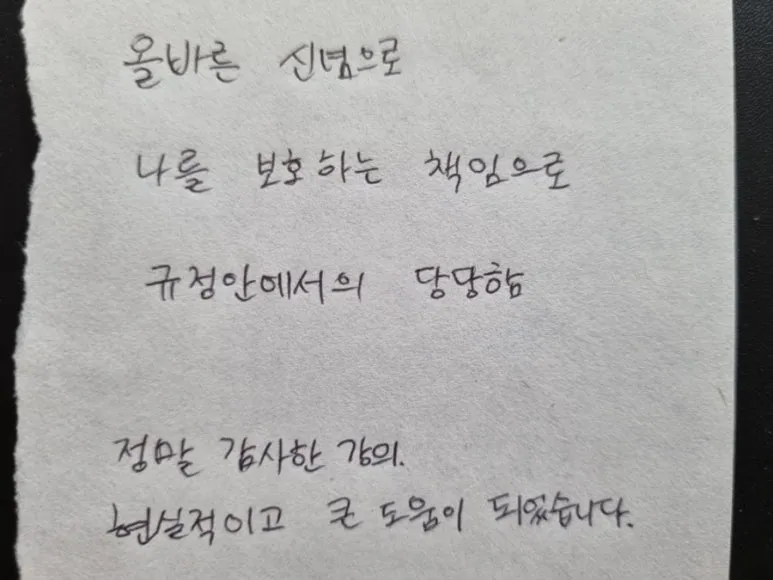 올바른 신념으로
나를 보호하는 책임으로
규정안에서의 당당함
정말 감사한 강의.
현실적이고 큰 도움이 되었습니다.